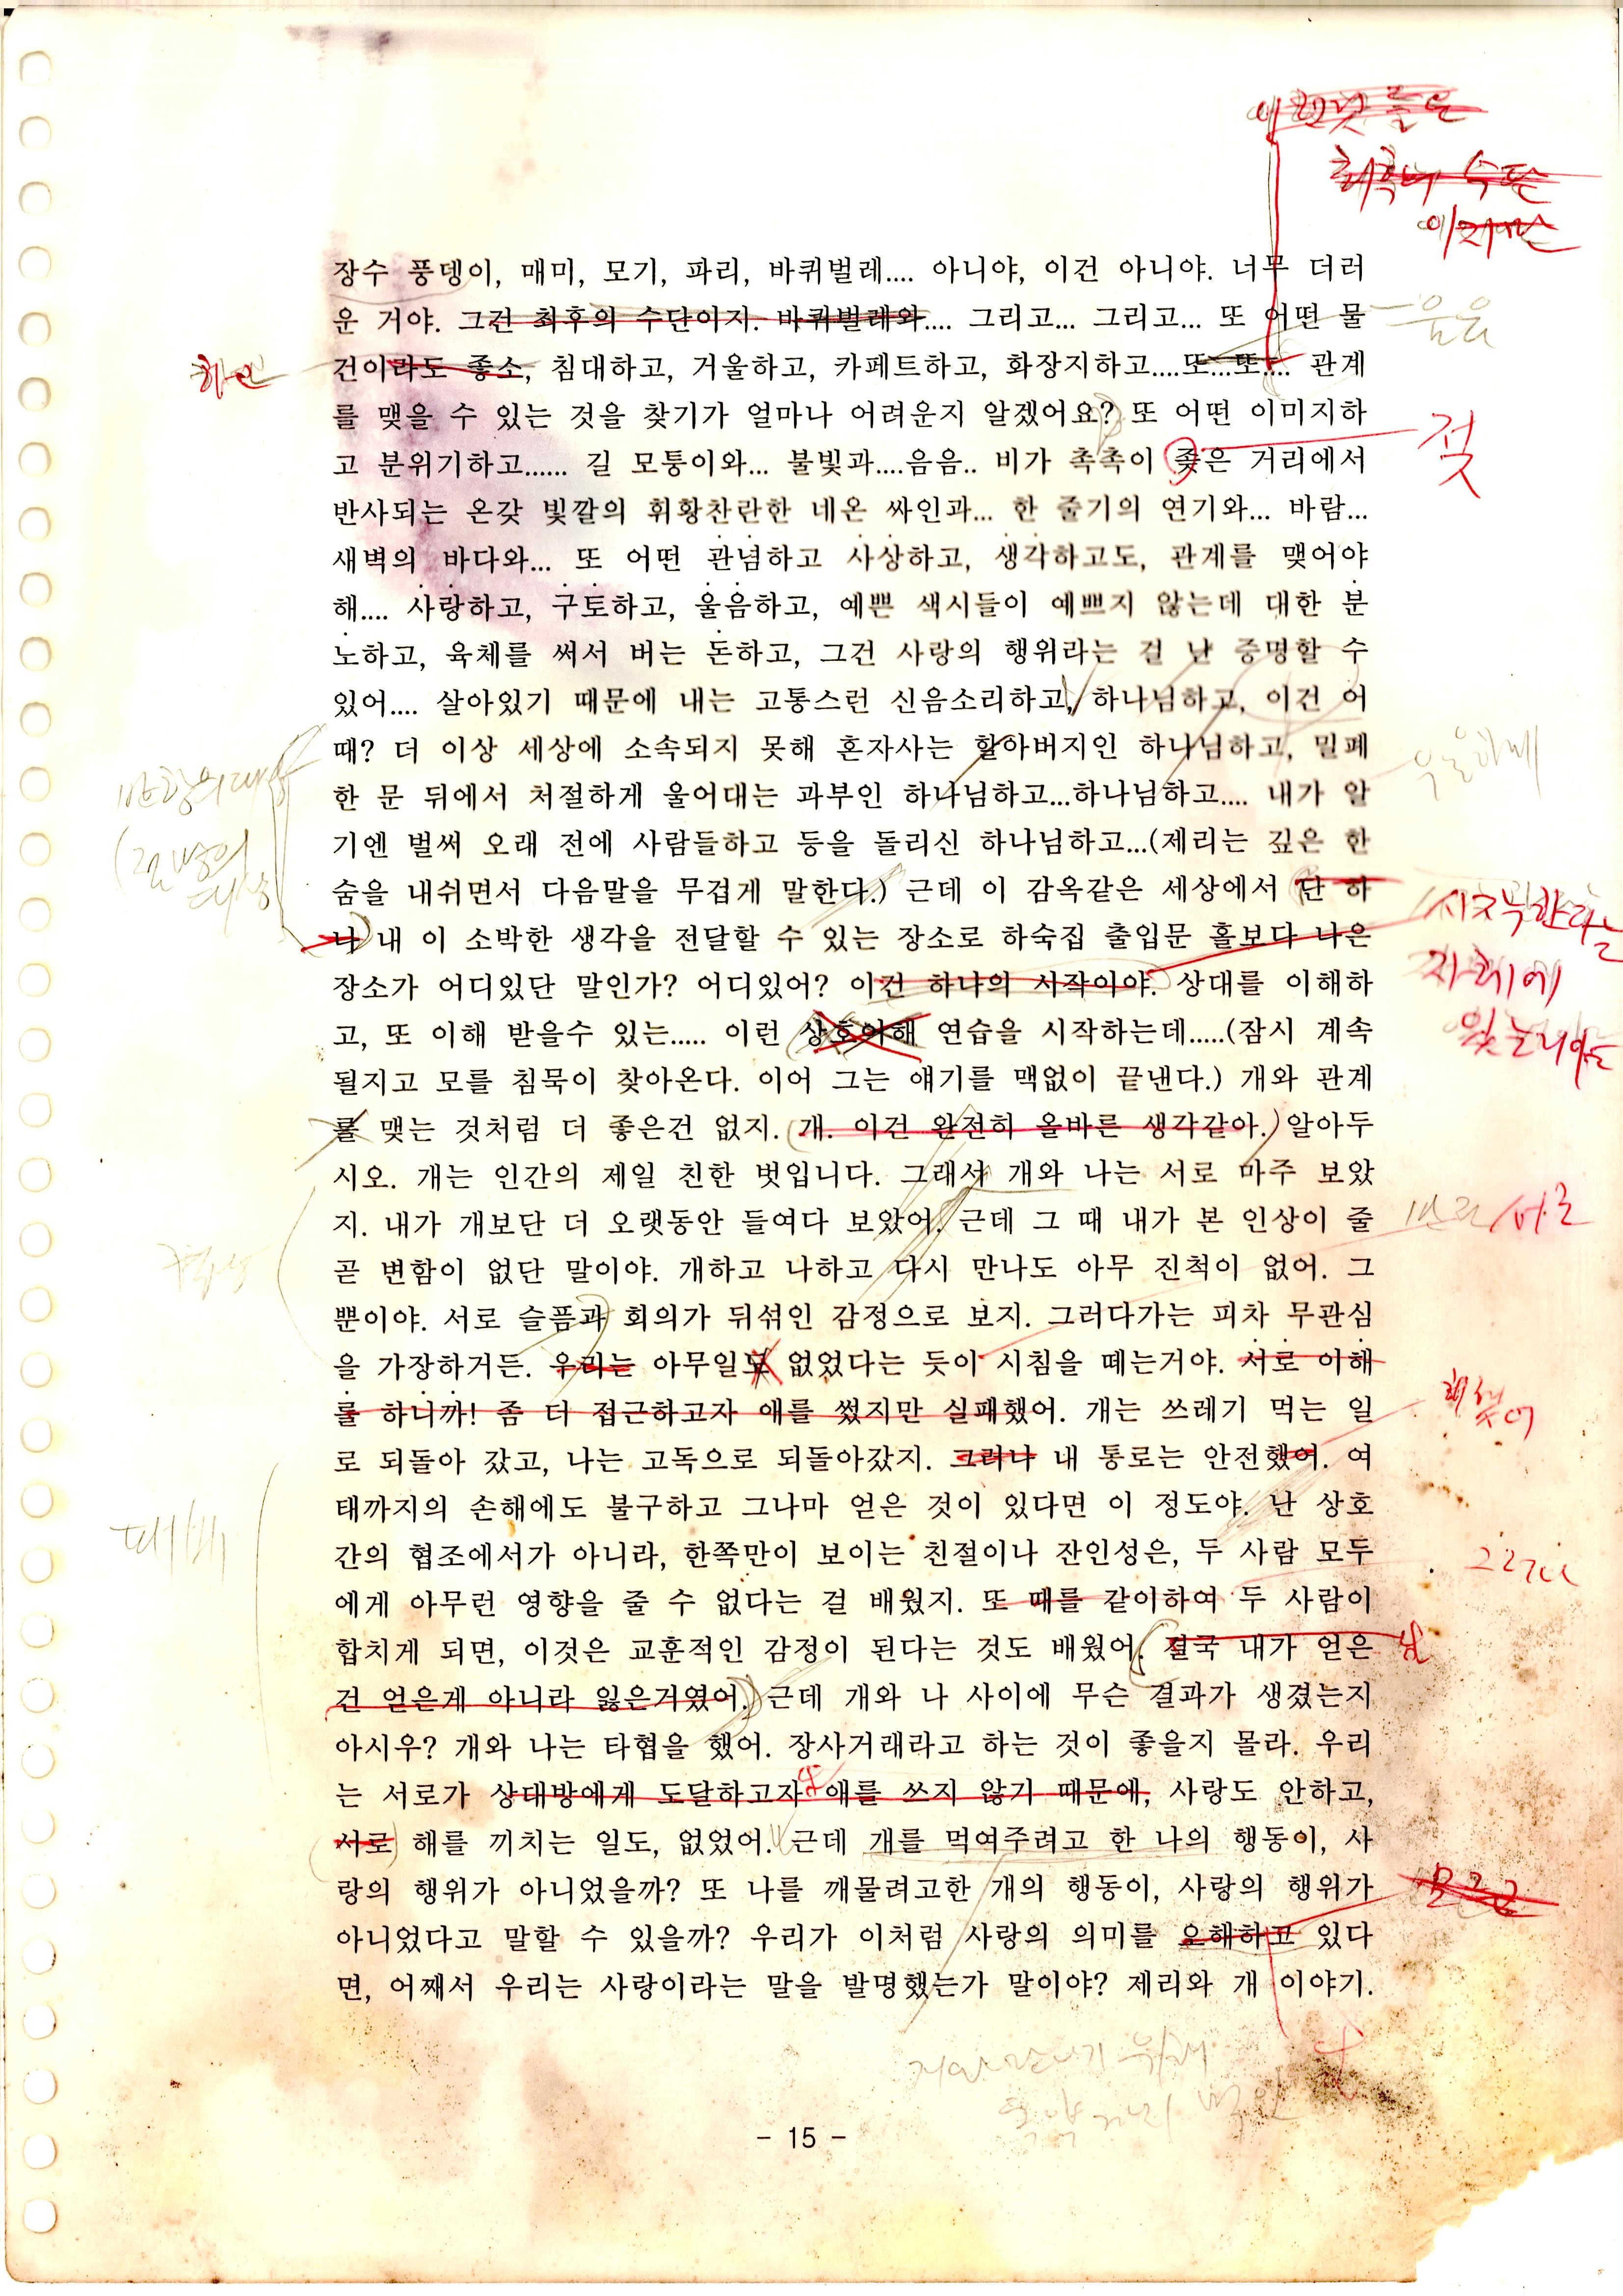 장수 풍뎅이, 매미, 모기, 파리, 바퀴벌레.... 아니야, 이건 아니야. 너무 더러
운 거야. 그건 최후의 수단이지. 바퀴벌레와.... 그리고... 그리고... 또 어떤 물
음음
건이라도 좋소, 침대하고, 거울하고, 카페트하고, 화장지하고....또...또.... 관계
를 맺을 수 있는 것을 찾기가 얼마나 어려운지 알겠어요? 또 어떤 이미지하
고 분위기하고...... 길 모퉁이와... 불빛과....음음.. 비가 촉촉이 좆은 거리에서
젖
반사되는 온갖 빛깔의 휘황찬란한 네온 싸인과... 한 줄기의 연기와... 바람...
새벽의 바다와... 또 어떤 관념하고 사상하고, 생각하고도, 관계를 맺어야
해.... 사랑하고, 구토하고, 울음하고, 예쁜 색시들이 예쁘지 않는데 대한 분
노하고, 육체를 써서 버는 돈하고, 그건 사랑의 행위라는 걸 난 증명할 수
있어.... 살아있기 때문에 내는 고통스런 신음소리하고, 하나님하고, 이건 어
때? 더 이상 세상에 소속되지 못해 혼자사는 할아버지인 하나님하고, 밀폐
우울하게
한 문 뒤에서 처절하게 울어대는 과부인 하나님하고...하나님하고.... 내가 알
기엔 벌써 오래 전에 사람들하고 등을 돌리신 하나님하고...(제리는 깊은 한
숨을 내쉬면서 다음말을 무겁게 말한다.) 근데 이 감옥같은 세상에서 단 하
나 내 이 소박한 생각을 전달할 수 있는 장소로 하숙집 출입문 홀보다 나은
장소가 어디있단 말인가? 어디있어? 이건 하나의 시작이야. 상대를 이해하
고, 또 이해 받을수 있는..... 이런 상호이해 연습을 시작하는데.....(잠시 계속
될지고 모를 침묵이 찾아온다. 이어 그는 얘기를 맥없이 끝낸다.) 개와 관계
를 맺는 것처럼 더 좋은건 없지. 개. 이건 완전히 올바른 생각같아. 알아두
시오. 개는 인간의 제일 친한 벗입니다. 그래서 개와 나는 서로 마주 보았
지. 내가 개보단 더 오랫동안 들여다 보았어. 근데 그 때 내가 본 인상이 줄
곧 변함이 없단 말이야. 개하고 나하고 다시 만나도 아무 진척이 없어. 그
뿐이야. 서로 슬픔과 회의가 뒤섞인 감정으로 보지. 그러다가는 피차 무관심
을 가장하거든. 우리는 아무일도 없었다는 듯이 시침을 떼는거야. 서로 이해
를 하니까! 좀 더 접근하고자 애를 썼지만 실패했어. 개는 쓰레기 먹는 일
로 되돌아 갔고, 나는 고독으로 되돌아갔지. 그러나 내 통로는 안전했어. 여
태까지의 손해에도 불구하고 그나마 얻은 것이 있다면 이 정도야. 난 상호
간의 협조에서가 아니라, 한쪽만이 보이는 친절이나 잔인성은, 두 사람 모두
에게 아무런 영향을 줄 수 없다는 걸 배웠지. 또 때를 같이하여 두 사람이
합치게 되면, 이것은 교훈적인 감정이 된다는 것도 배웠어. 결국 내가 얻은
건 얻은게 아니라 잃은거였어. 근데 개와 나 사이에 무슨 결과가 생겼는지
아시우? 개와 나는 타협을 했어. 장사거래라고 하는 것이 좋을지 몰라. 우리
는 서로가 상대방에게 도달하고자 애를 쓰지 않기 때문에, 사랑도 안하고,
서로 해를 끼치는 일도, 없었어. 근데 개를 먹여주려고 한 나의 행동이, 사
랑의 행위가 아니었을까? 또 나를 깨물려고한 개의 행동이, 사랑의 행위가
아니었다고 말할 수 있을까? 우리가 이처럼 사랑의 의미를 오해하고 있다
면, 어째서 우리는 사랑이라는 말을 발명했는가 말이야? 제리와 개 이야기.
- 15 -